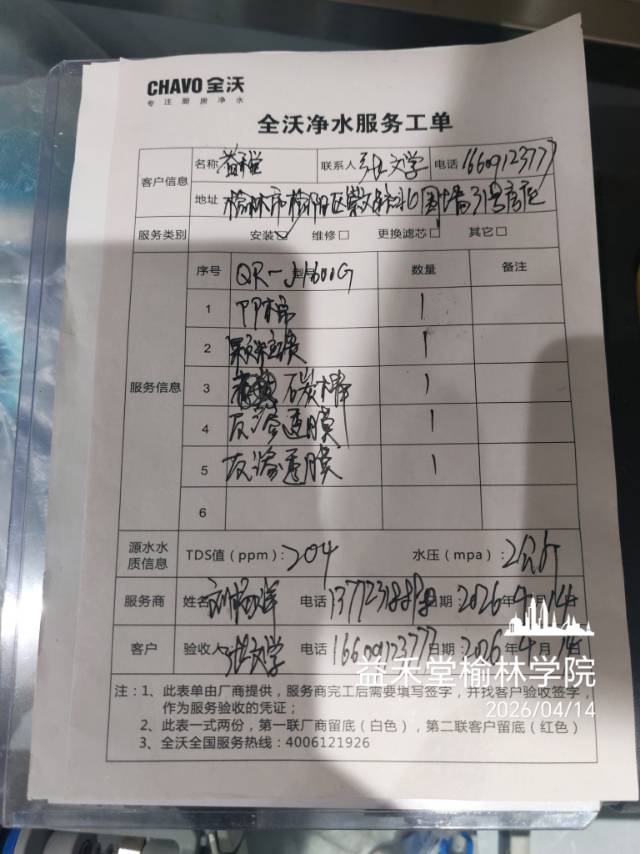 CHAVO 全沃
专注厨房净水
全沃净水服务工单
客户信息 名称 联系人 张文学 电话 16609123777
地址 榆林市榆阳区
服务类别 安装□ 维修□ 更换滤芯□ 其它□
服务信息
序号 QR-J1600G 数量 备注
1 PP棉 1
2 1
3 碳棒 1
4 反渗透膜 1
5 反渗透膜 1
6
源水水质信息 TDS值(ppm):204 水压(mpa):2公斤
服务商 姓名 电话 日期:2026年4月14
客户 验收 张文学 电话 16609123777 日期:2026年4月14
注:1、此表单由厂商提供,服务商完工后需要填写签字,并找客户验收签字,
作为服务验收的凭证;
2、此表一式两份,第一联厂商留底(白色),第二联客户留底(红色)
3、全沃全国服务热线:4006121926
益禾堂榆林学院
2026/04/14